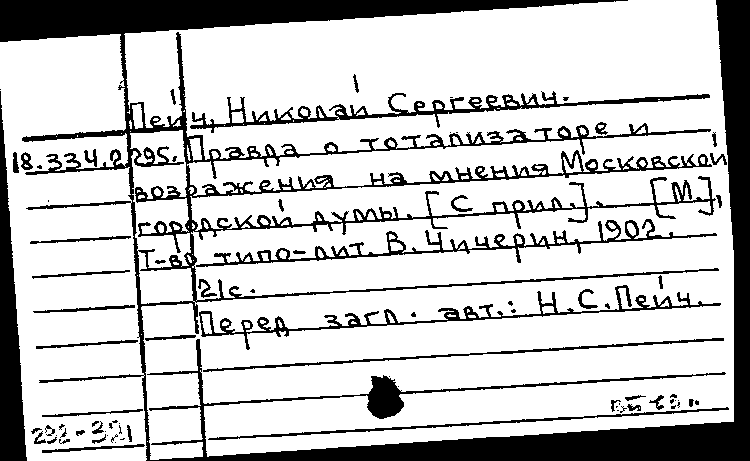 Пейч, Николай Сергеевич.
18.334.2.295. Правда о тотализаторе и
возражения на мнения Московской
городской думы. [С прил.]. [М.],
Т-во типо-лит. В. Чичерин, 1902.
21с.
Перед загл. авт.: Н.С.Пейч.
292-321